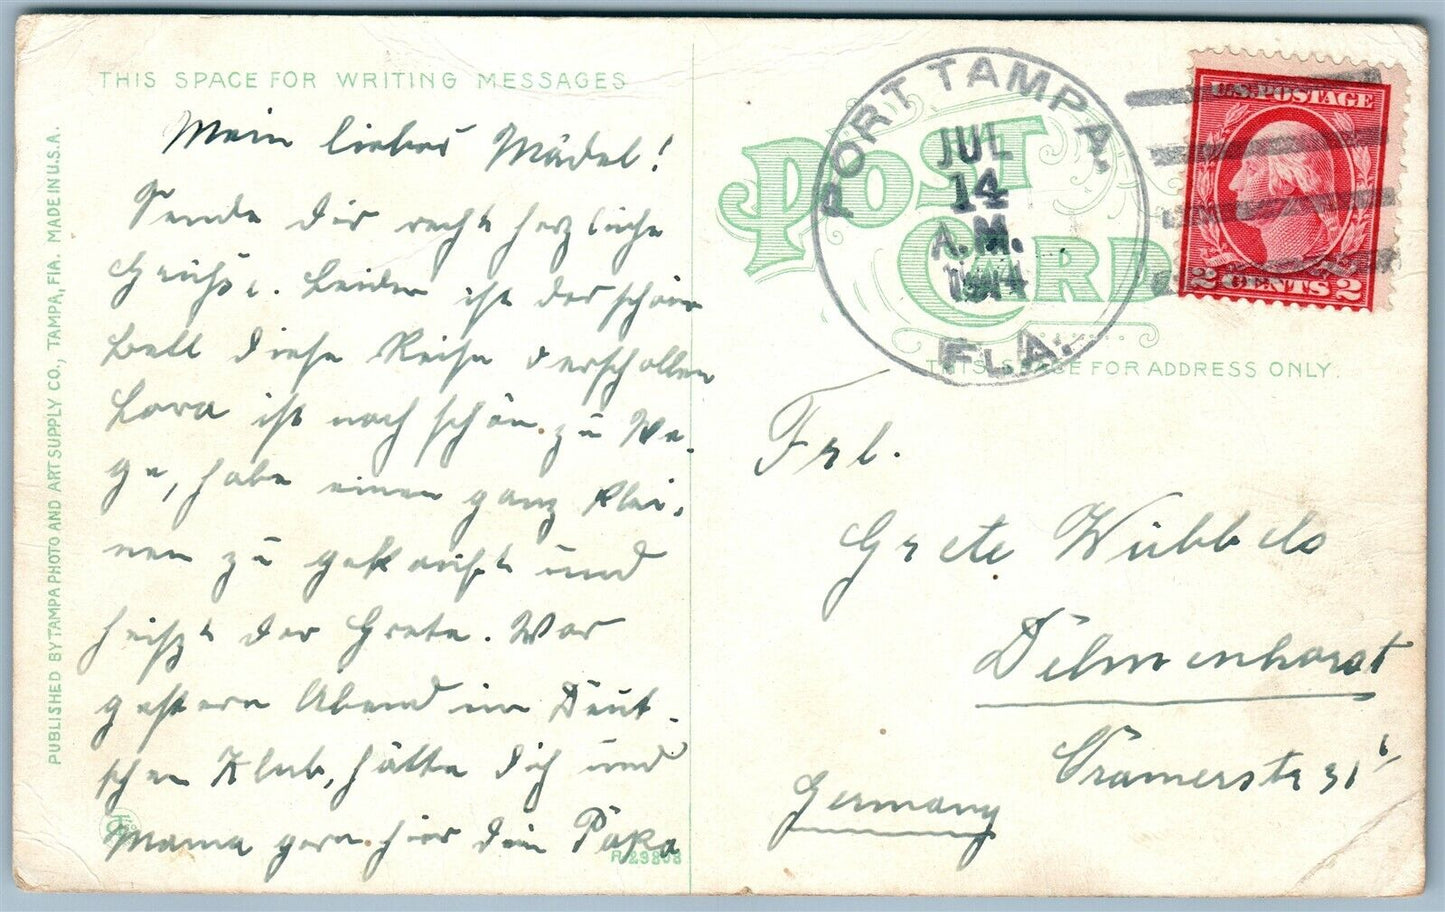 THIS SPACE FOR WRITING MESSAGES
Mein liebes Mädel!
Sende dir recht herzliche
Grüße. Leider ist der schöne
Ball diese Reise verschollen
Lora ist noch schön zu We-
ge, habe einen ganz klei-
nen zu gekauft und
heißt der Grete. War
gestern Abend im Deut-
schen Klub, hätte dich und
Mama gern hier dein Papa
PUBLISHED BY TAMPA PHOTO AND ART SUPPLY CO., TAMPA, FLA. MADE IN U.S.A.
R-29808
POST CARD
THIS SPACE FOR ADDRESS ONLY.
PORT TAMPA,
JUL
14
A.M.
1914
FLA.
U.S. POSTAGE
2 CENTS 2
Frl.
Grete Wübbels
Delmenhorst
Cramerstr 31
Germany